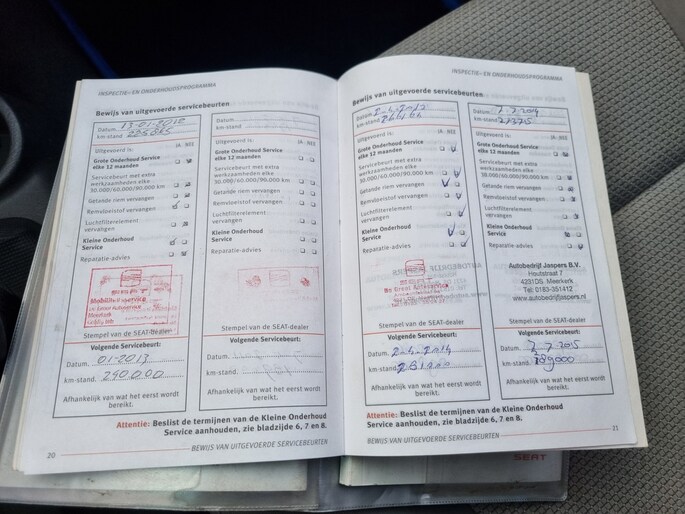 INSPECTIE- EN ONDERHOUDSPROGRAMMA
Bewijs van uitgevoerde servicebeurten
Datum. 13-01-2012
km-stand.
Uitgevoerd is: JA NEE
Grote Onderhoud Service
elke 12 maanden
Servicebeurt met extra
werkzaamheden elke
30.000/60.000/90.000 km
Getande riem vervangen
Remvloeistof vervangen
Luchtfilterelement
vervangen
Kleine Onderhoud
Service
Reparatie-advies
SEAT
Stempel van de SEAT-dealer
Volgende Servicebeurt:
Datum. 01-2013
km-stand. 240.000
Afhankelijk van wat het eerst wordt
bereikt.
Datum.
km-stand.
Uitgevoerd is: JA NEE
Grote Onderhoud Service
elke 12 maanden
Servicebeurt met extra
werkzaamheden elke
30.000/60.000/90.000 km
Getande riem vervangen
Remvloeistof vervangen
Luchtfilterelement
vervangen
Kleine Onderhoud
Service
Reparatie-advies
Stempel van de SEAT-dealer
Volgende Servicebeurt:
Datum.
km-stand.
Afhankelijk van wat het eerst wordt
bereikt.
Attentie: Beslist de termijnen van de Kleine Onderhoud
Service aanhouden, zie bladzijde 6, 7 en 8.
20
BEWIJS VAN UITGEVOERDE SERVICEBEURTEN
INSPECTIE- EN ONDERHOUDSPROGRAMMA
Bewijs van uitgevoerde servicebeurten
Datum.
km-stand.
Uitgevoerd is: JA NEE
Grote Onderhoud Service
elke 12 maanden
Servicebeurt met extra
werkzaamheden elke
30.000/60.000/90.000 km
Getande riem vervangen
Remvloeistof vervangen
Luchtfilterelement
vervangen
Kleine Onderhoud
Service
Reparatie-advies
Stempel van de SEAT-dealer
Volgende Servicebeurt:
Datum. 2-4-2014
km-stand.
Afhankelijk van wat het eerst wordt
bereikt.
Datum. 7-7-2014
km-stand.
Uitgevoerd is: JA NEE
Grote Onderhoud Service
elke 12 maanden
Servicebeurt met extra
werkzaamheden elke
30.000/60.000/90.000 km
Getande riem vervangen
Remvloeistof vervangen
Luchtfilterelement
vervangen
Kleine Onderhoud
Service
Reparatie-advies
Autobedrijf Jaspers B.V.
Houtstraat 7
4231DS. Meerkerk
Tel; 0183-351412
www.autobedrijfjaspers.nl
Stempel van de SEAT-dealer
Volgende Servicebeurt:
Datum. 7-7-2015
km-stand.
Afhankelijk van wat het eerst wordt
bereikt.
Attentie: Beslist de termijnen van de Kleine Onderhoud
Service aanhouden, zie bladzijde 6, 7 en 8.
BEWIJS VAN UITGEVOERDE SERVICEBEURTEN
21
SEAT